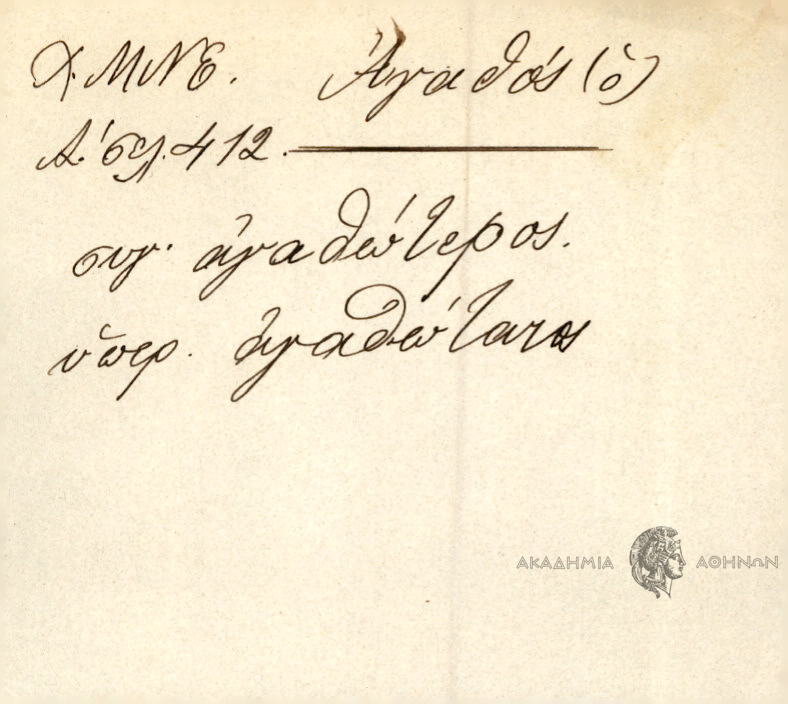 Χ.ΜΝΕ. Ἀγαθός (ὁ)
Α.΄ σελ. 412.
συγ. ἀγαθώτερος.
ὑπερ. ἀγαθώτατος
ΑΚΑΔΗΜΙΑ ΑΘΗΝΩΝ